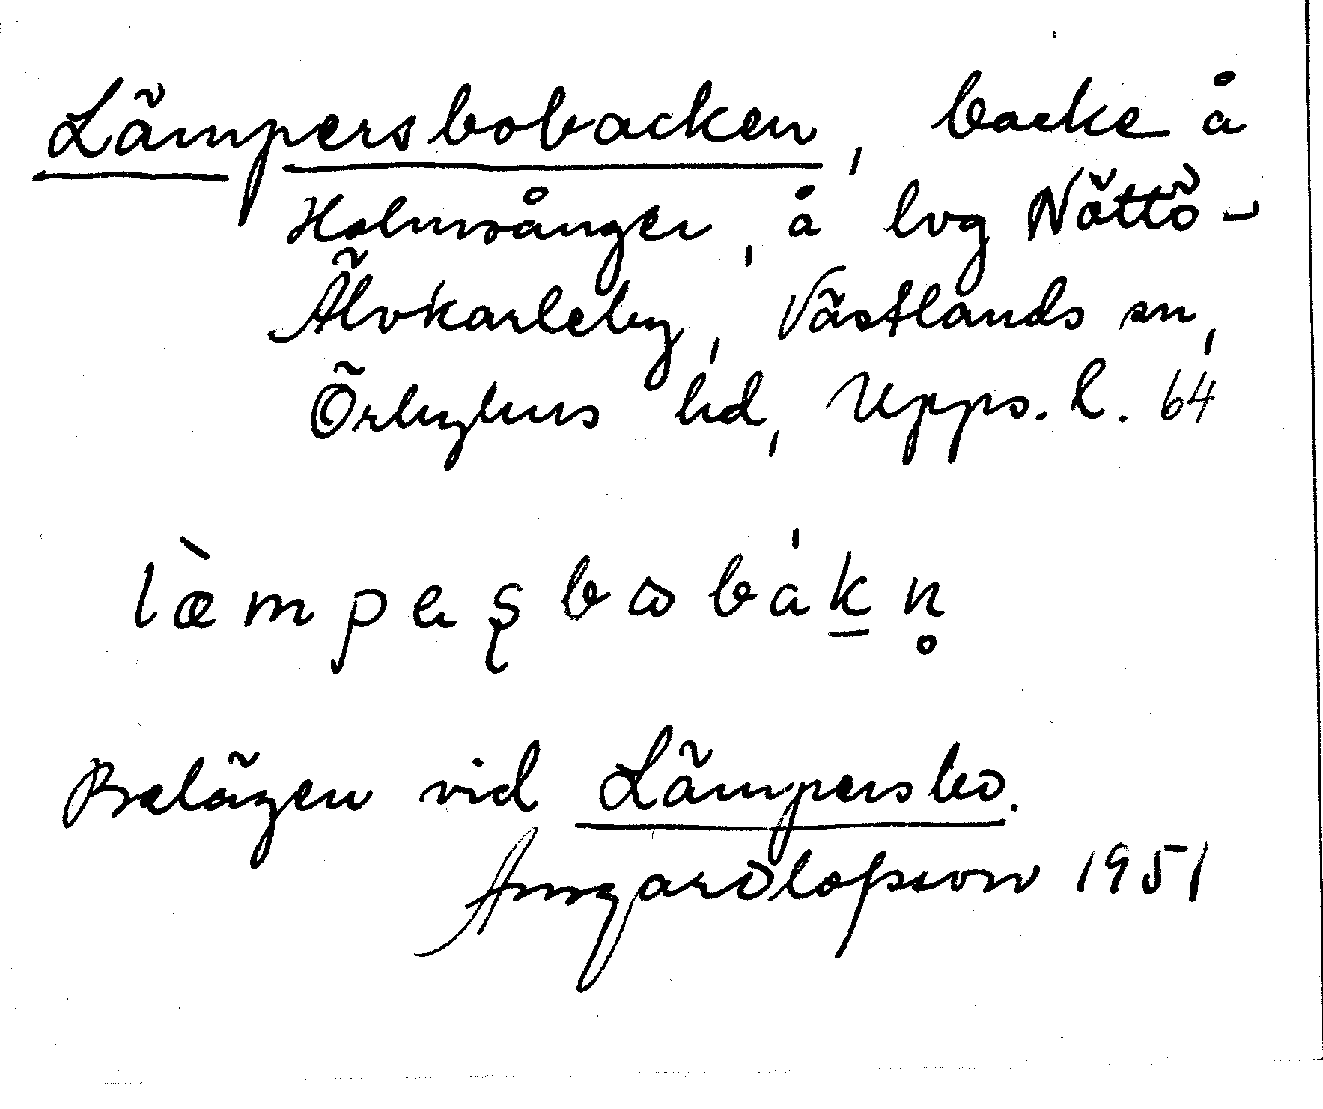 Lämpersbobacken, backe å
Holmsånger, å lvg Nöttö-
Älvkarleby, Västlands sn,
Örbyhus hd, Upps. l. 64
læ̀mpeʂbωbákn̥
Belägen vid Lämpersbo.
Ansgar Olofsson 1951